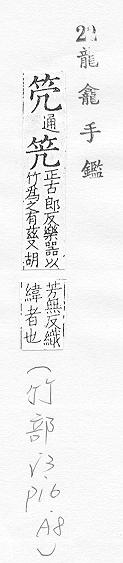 22 龍龕手鑑
通 笐 正古郎反樂器以
竹爲之有又胡
芳無反織
緯者也
(竹部 V3. P16. A8)